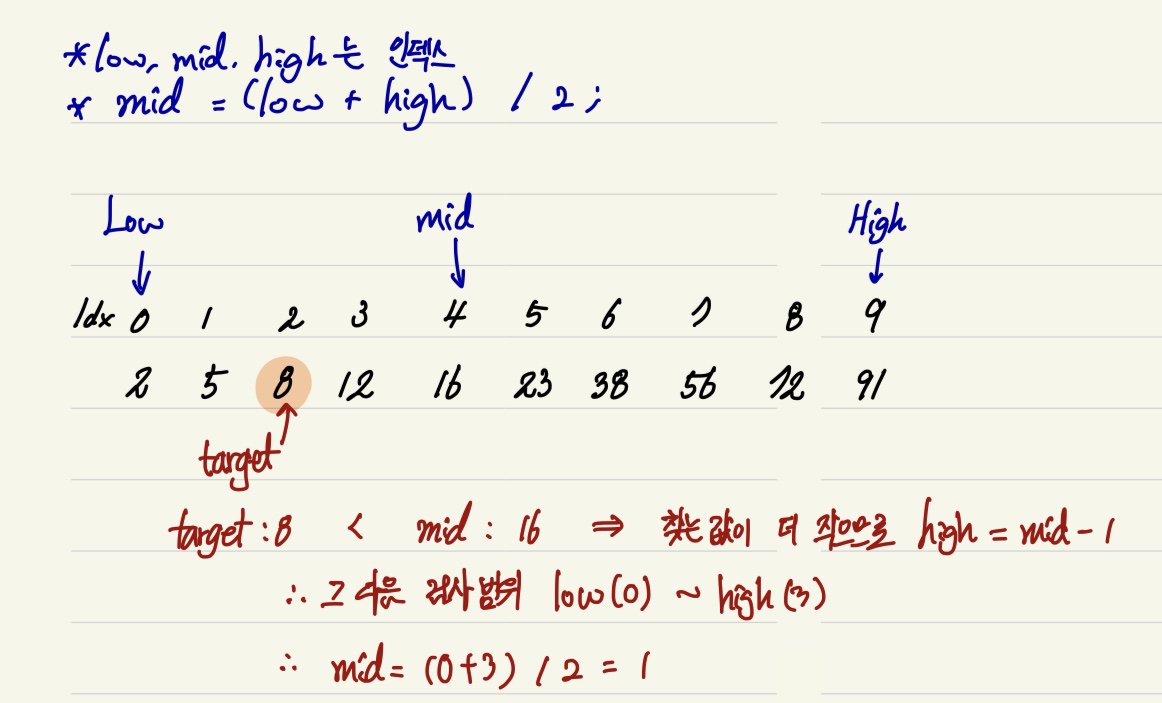 *low, mid. high는 인덱스
* mid = (low + high) / 2;
Low mid High
Idx 0 1 2 3 4 5 6 7 8 9
2 5 8 12 16 23 38 56 72 91
target
target : 8 < mid : 16 ⇒ 찾는 값이 더 작으므로 high = mid - 1
∴ 그 다음 검사 범위 low (0) ~ high (3)
∴ mid = (0+3) / 2 = 1